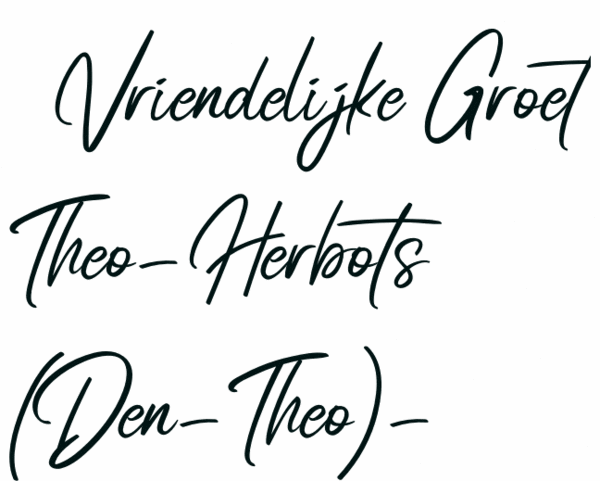 Vriendelijke Groet
Theo-Herbots
(Den-Theo)-